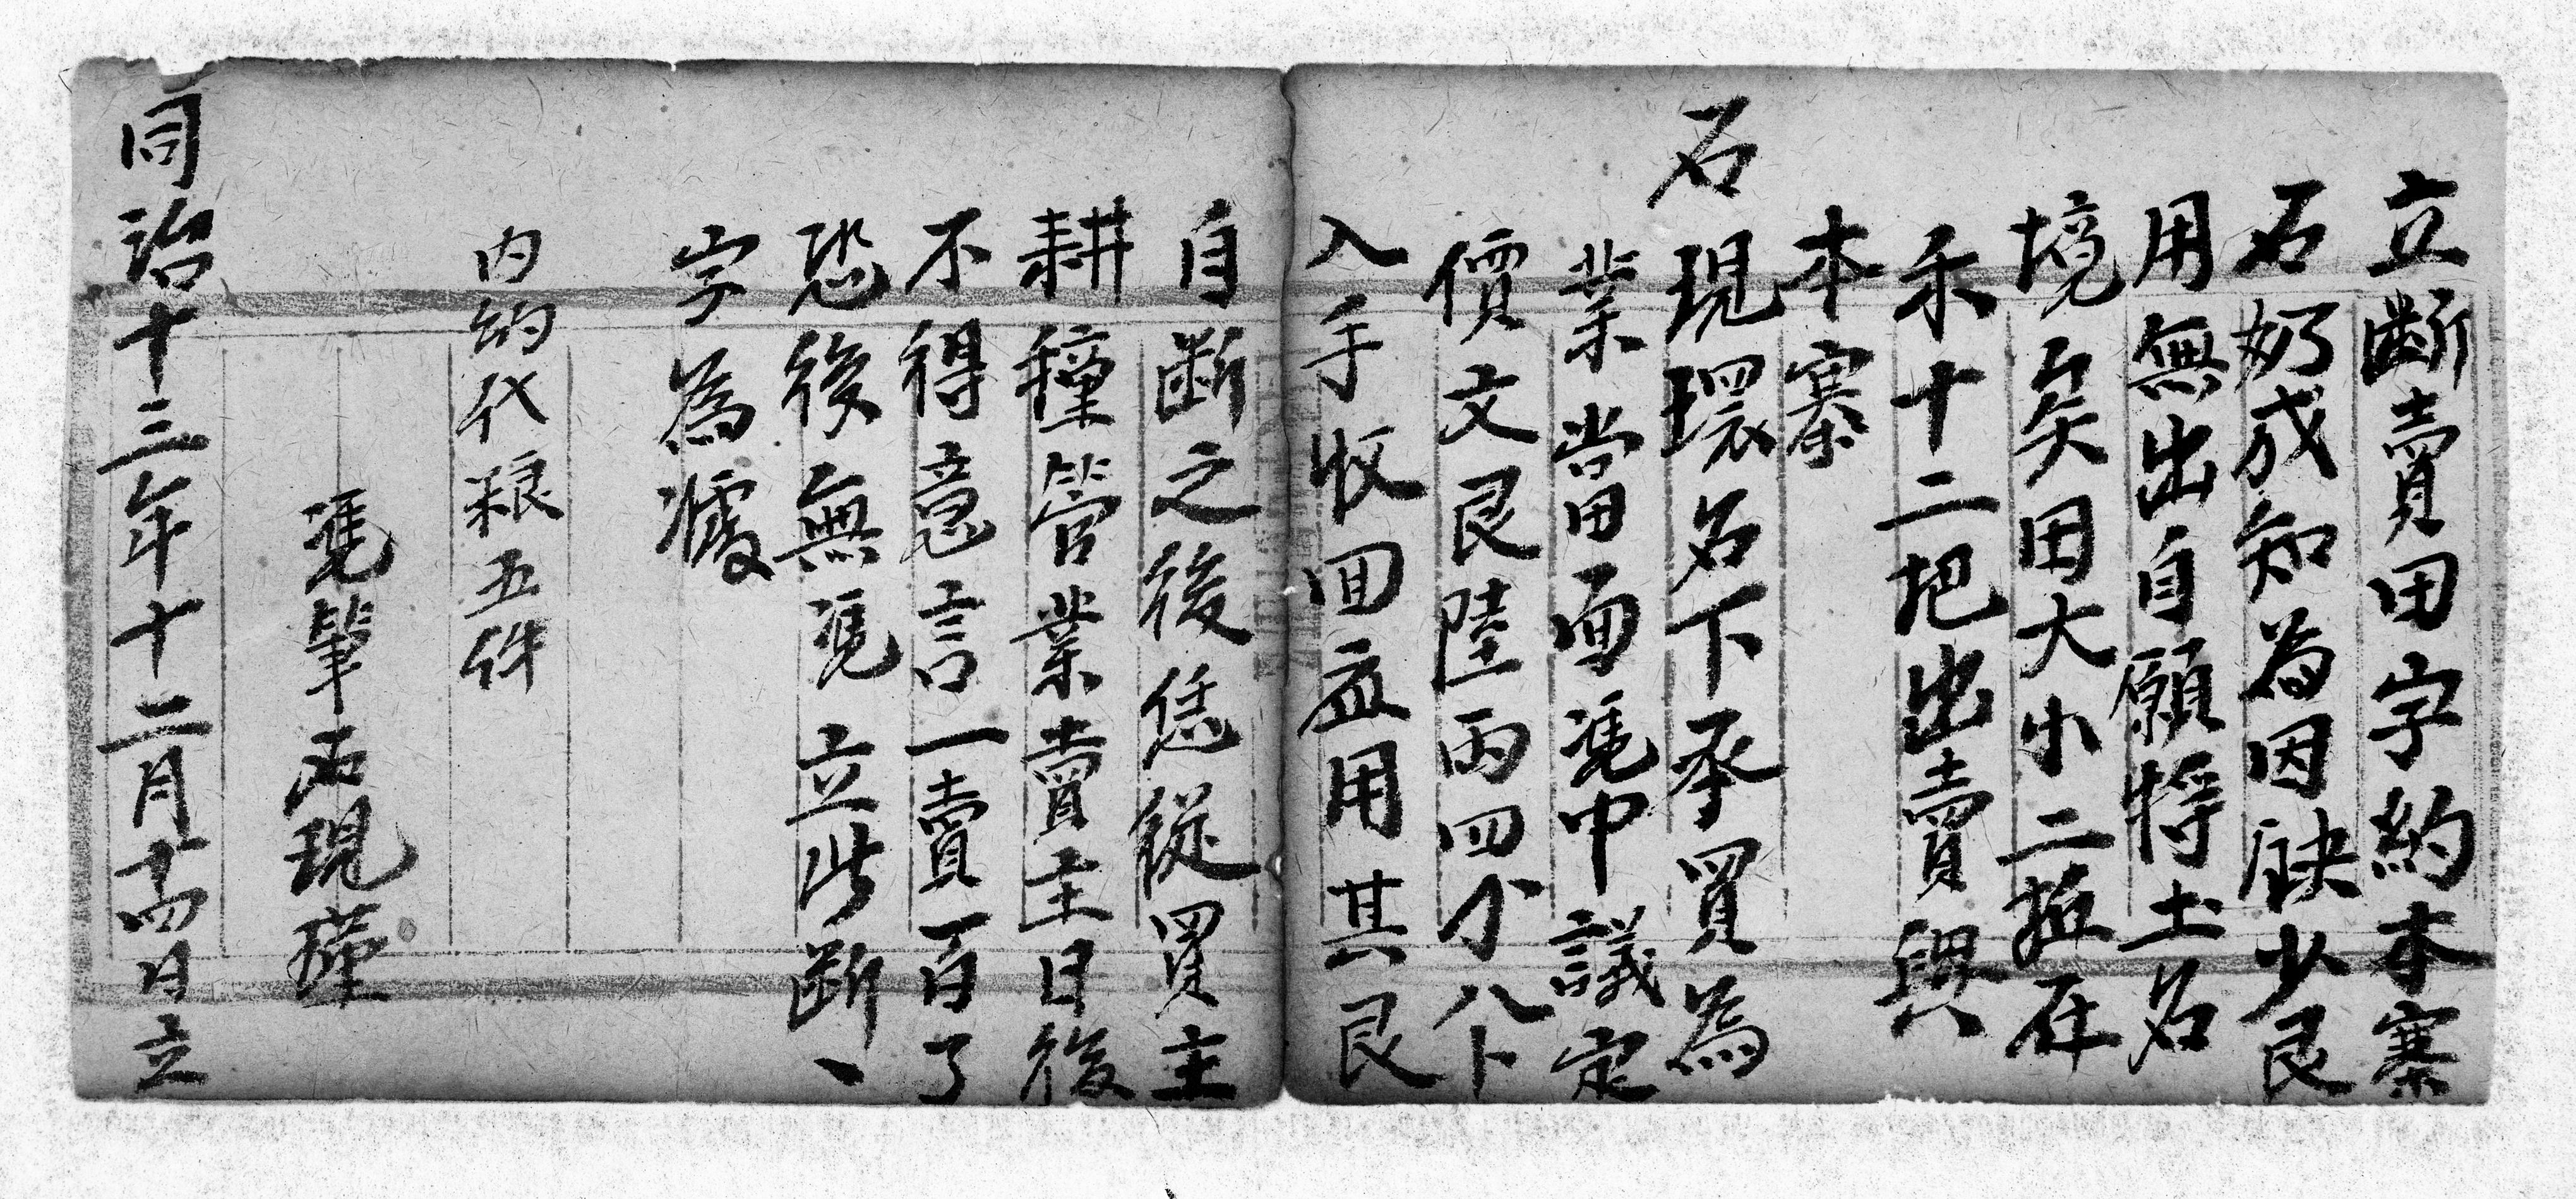 立斷賣田字約本寨
石奶成知為因缺少艮
用無出自願將土名
境矣田大小二坵在
禾十二把出賣與
本寨
石現環名下承買為
業當面凴中議定
價文艮陸両四小八卜
入手收回益用其艮
自斷之後恁從買主
耕種管業賣主日後
不得意言一賣百了
恐後無凴立此斷、
字為㨿
内約代粮五件
凴筆石現瓊
同治十三年十二月十四日立